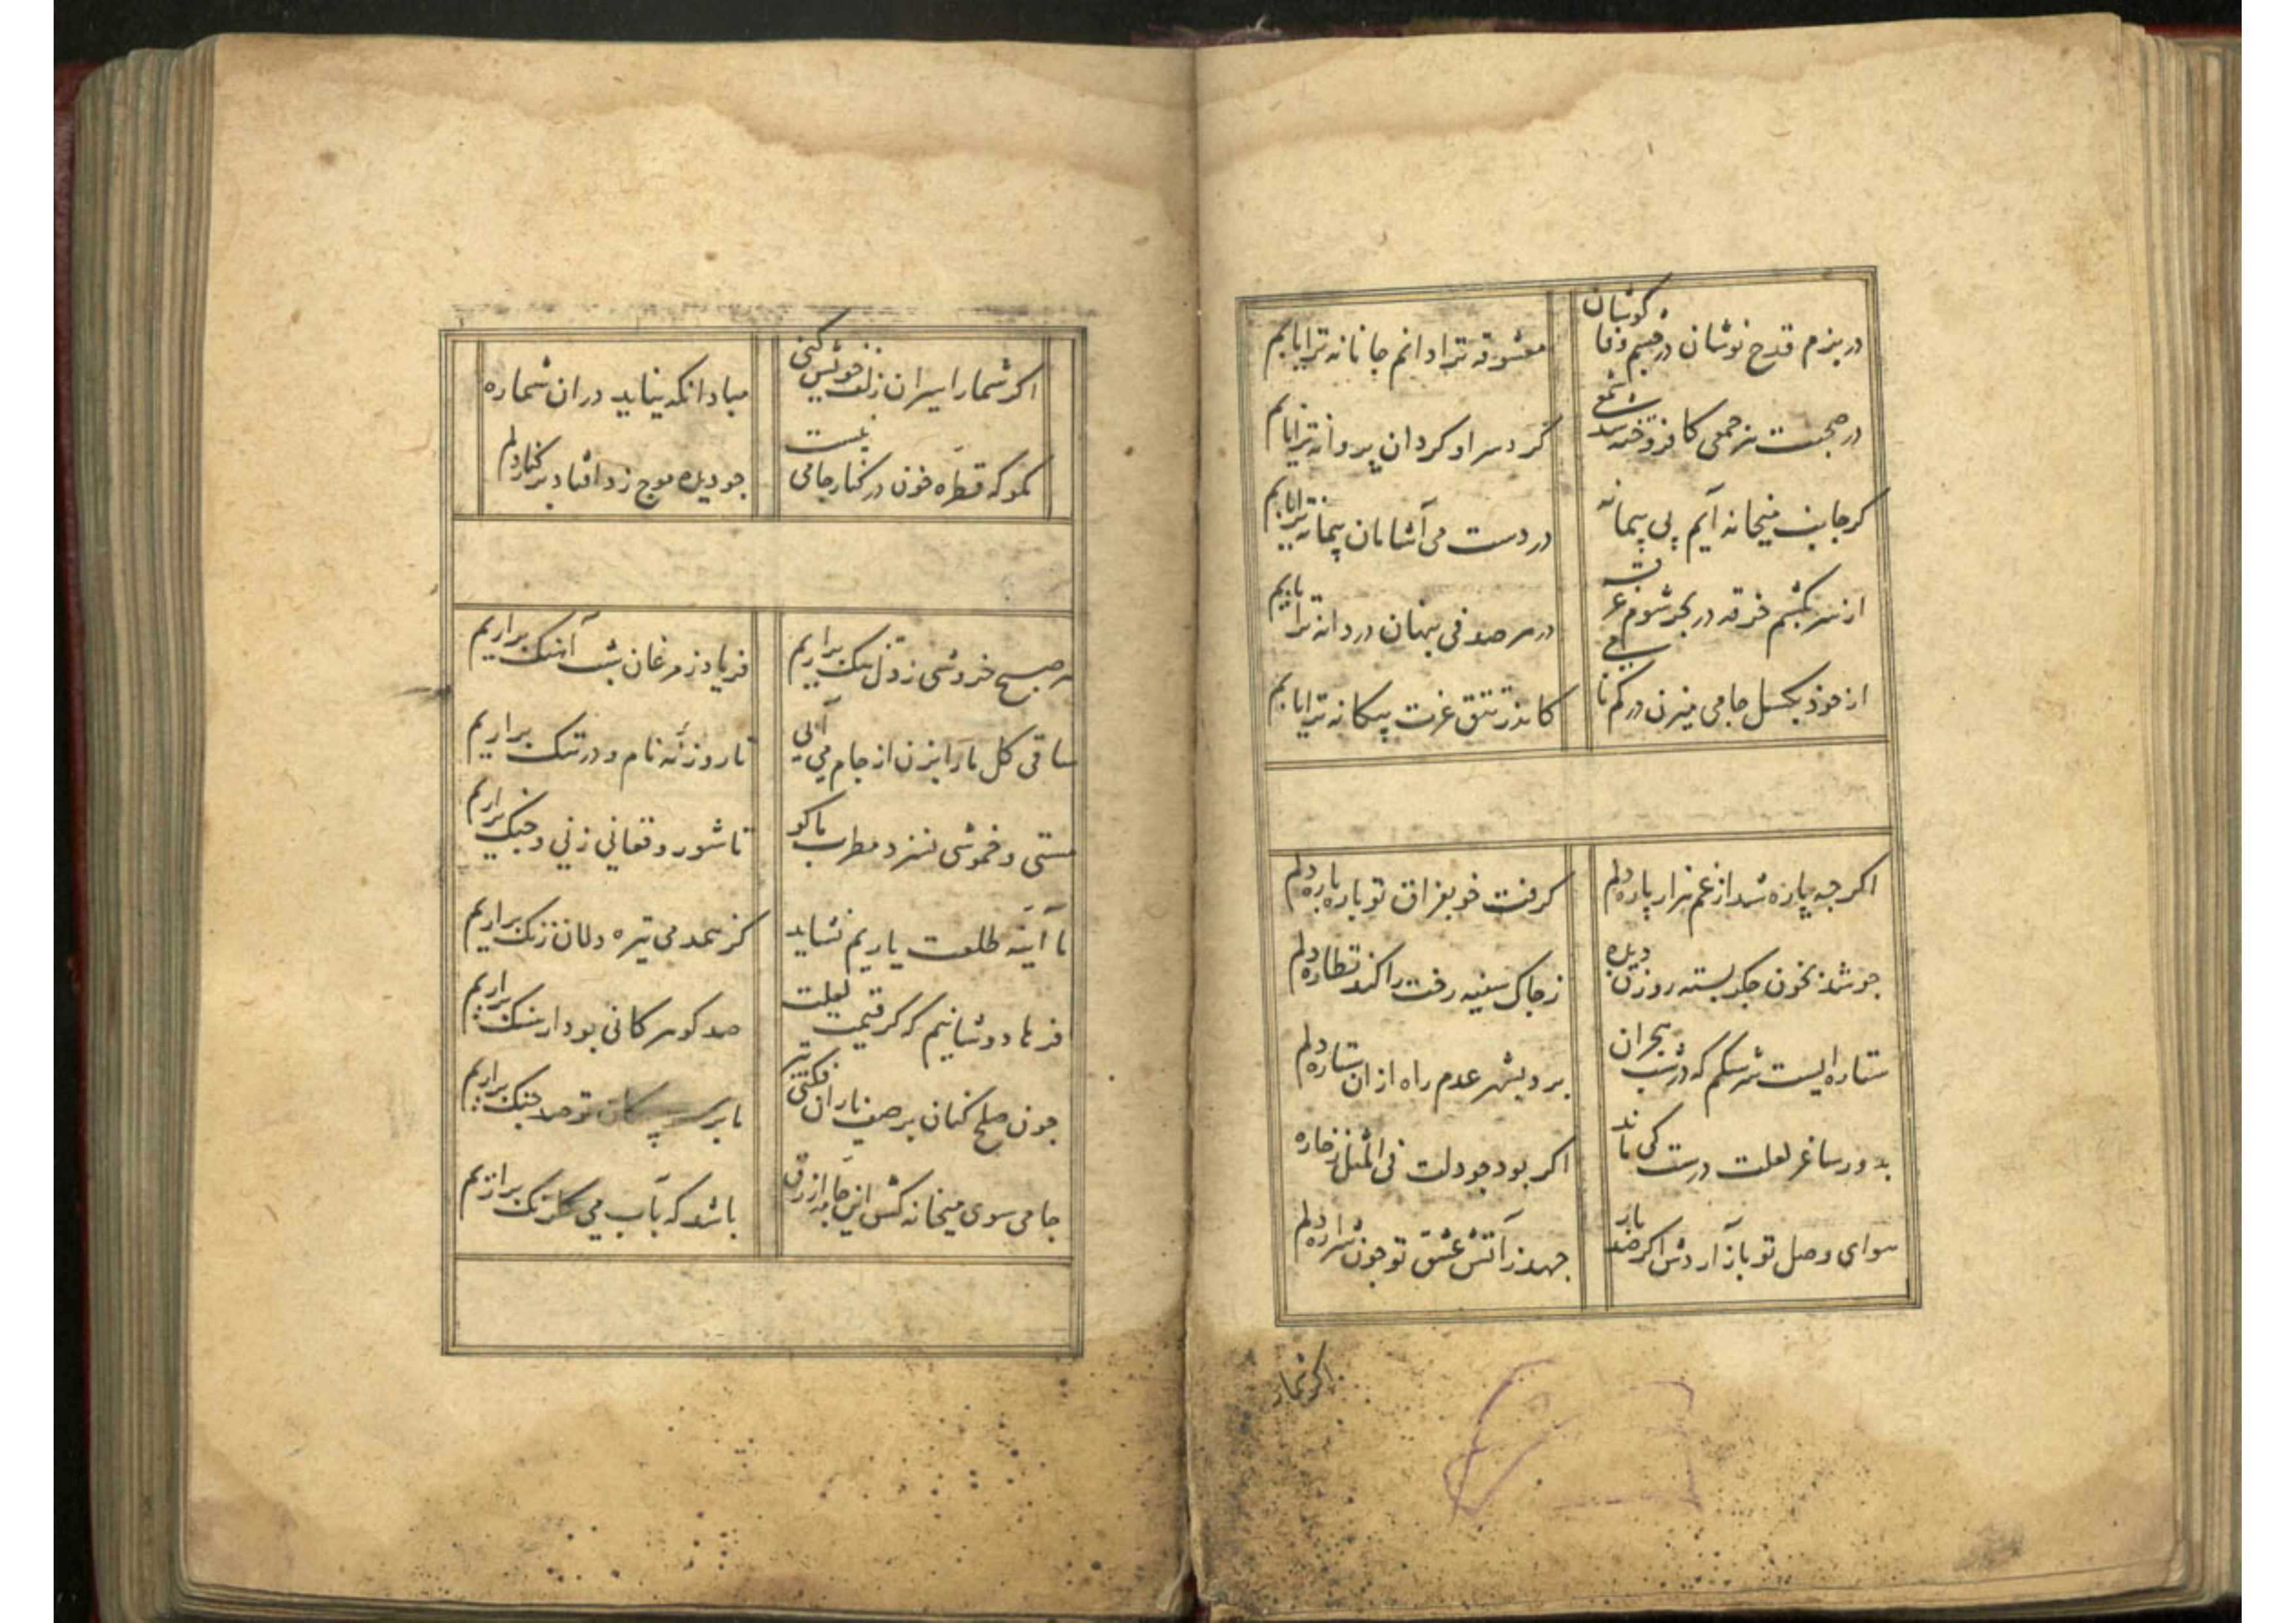 در بزم قدح نوشان در چشم وفا کوشان
معشوقه ترا دانم جانانه ترا یابم
در صحبت هر جمعی کافروخته شد شمعی
گرد سر او کردان پروانه ترا یابم
کر جانب میخانه آیم پی پیمانه
در دست می آشامان پیمانه ترا یابم
از سر بکشم خرقه در بحر شوم غرقه
در هر صدفی پنهان دردانه ترا یابم
از خود بکسل جامی میزن در کم نامی
کاندر تتق عزت بیکانه ترا یابم
اکرچه پاره شد از غم هزار پاره دلم
کرفت خو بفراق تو پاره پاره دلم
جو شد ز خون جکر بسته روزن دیده
ز جاک سینه رفت راکند نظاره دلم
ستاره ایست سرشکم که در شب هجران
برد بشهر عدم راه ازان ستاره دلم
بدور ساغر لعلت درست کی ماند
اکر بود جو دلت فی المثل ز خاره
هوای وصل تو باز آردش اکر صد بار
جهد ز آتش عشق تو جون شراره دلم
اکر شمار
اکر شمار اسیران زلف خویش کنی
مباد انکه نیاید دران شماره
مکو که قطره خون در کنار جامی نیست
جو دیده موج زد افتاد بر کنار دلم
هر صبح خروشی ز دل تنک براریم
فریاد ز مرغان شب آهنک براریم
ساقی کل ما را بزن از جام می آبی
تا روزنه نام و در ننک براریم
مستی و خموشی نسزد مطرب ما کو
تا شور و فغانی ز نی و جنک براریم
ما آینه طلعت یاریم نشاید
کز همدمی تیره دلان زنک براریم
فرهاد وشانیم که کر قیمت لعلت
صد کوهر کانی بود از سنک براریم
جون صلح کنان بر صف یاران فکنی تیر
ما بر سر پیکان تو صد جنک براریم
جامی سوی میخانه کش این جامه ازرق
باشد که بآب می کلرنک براریم